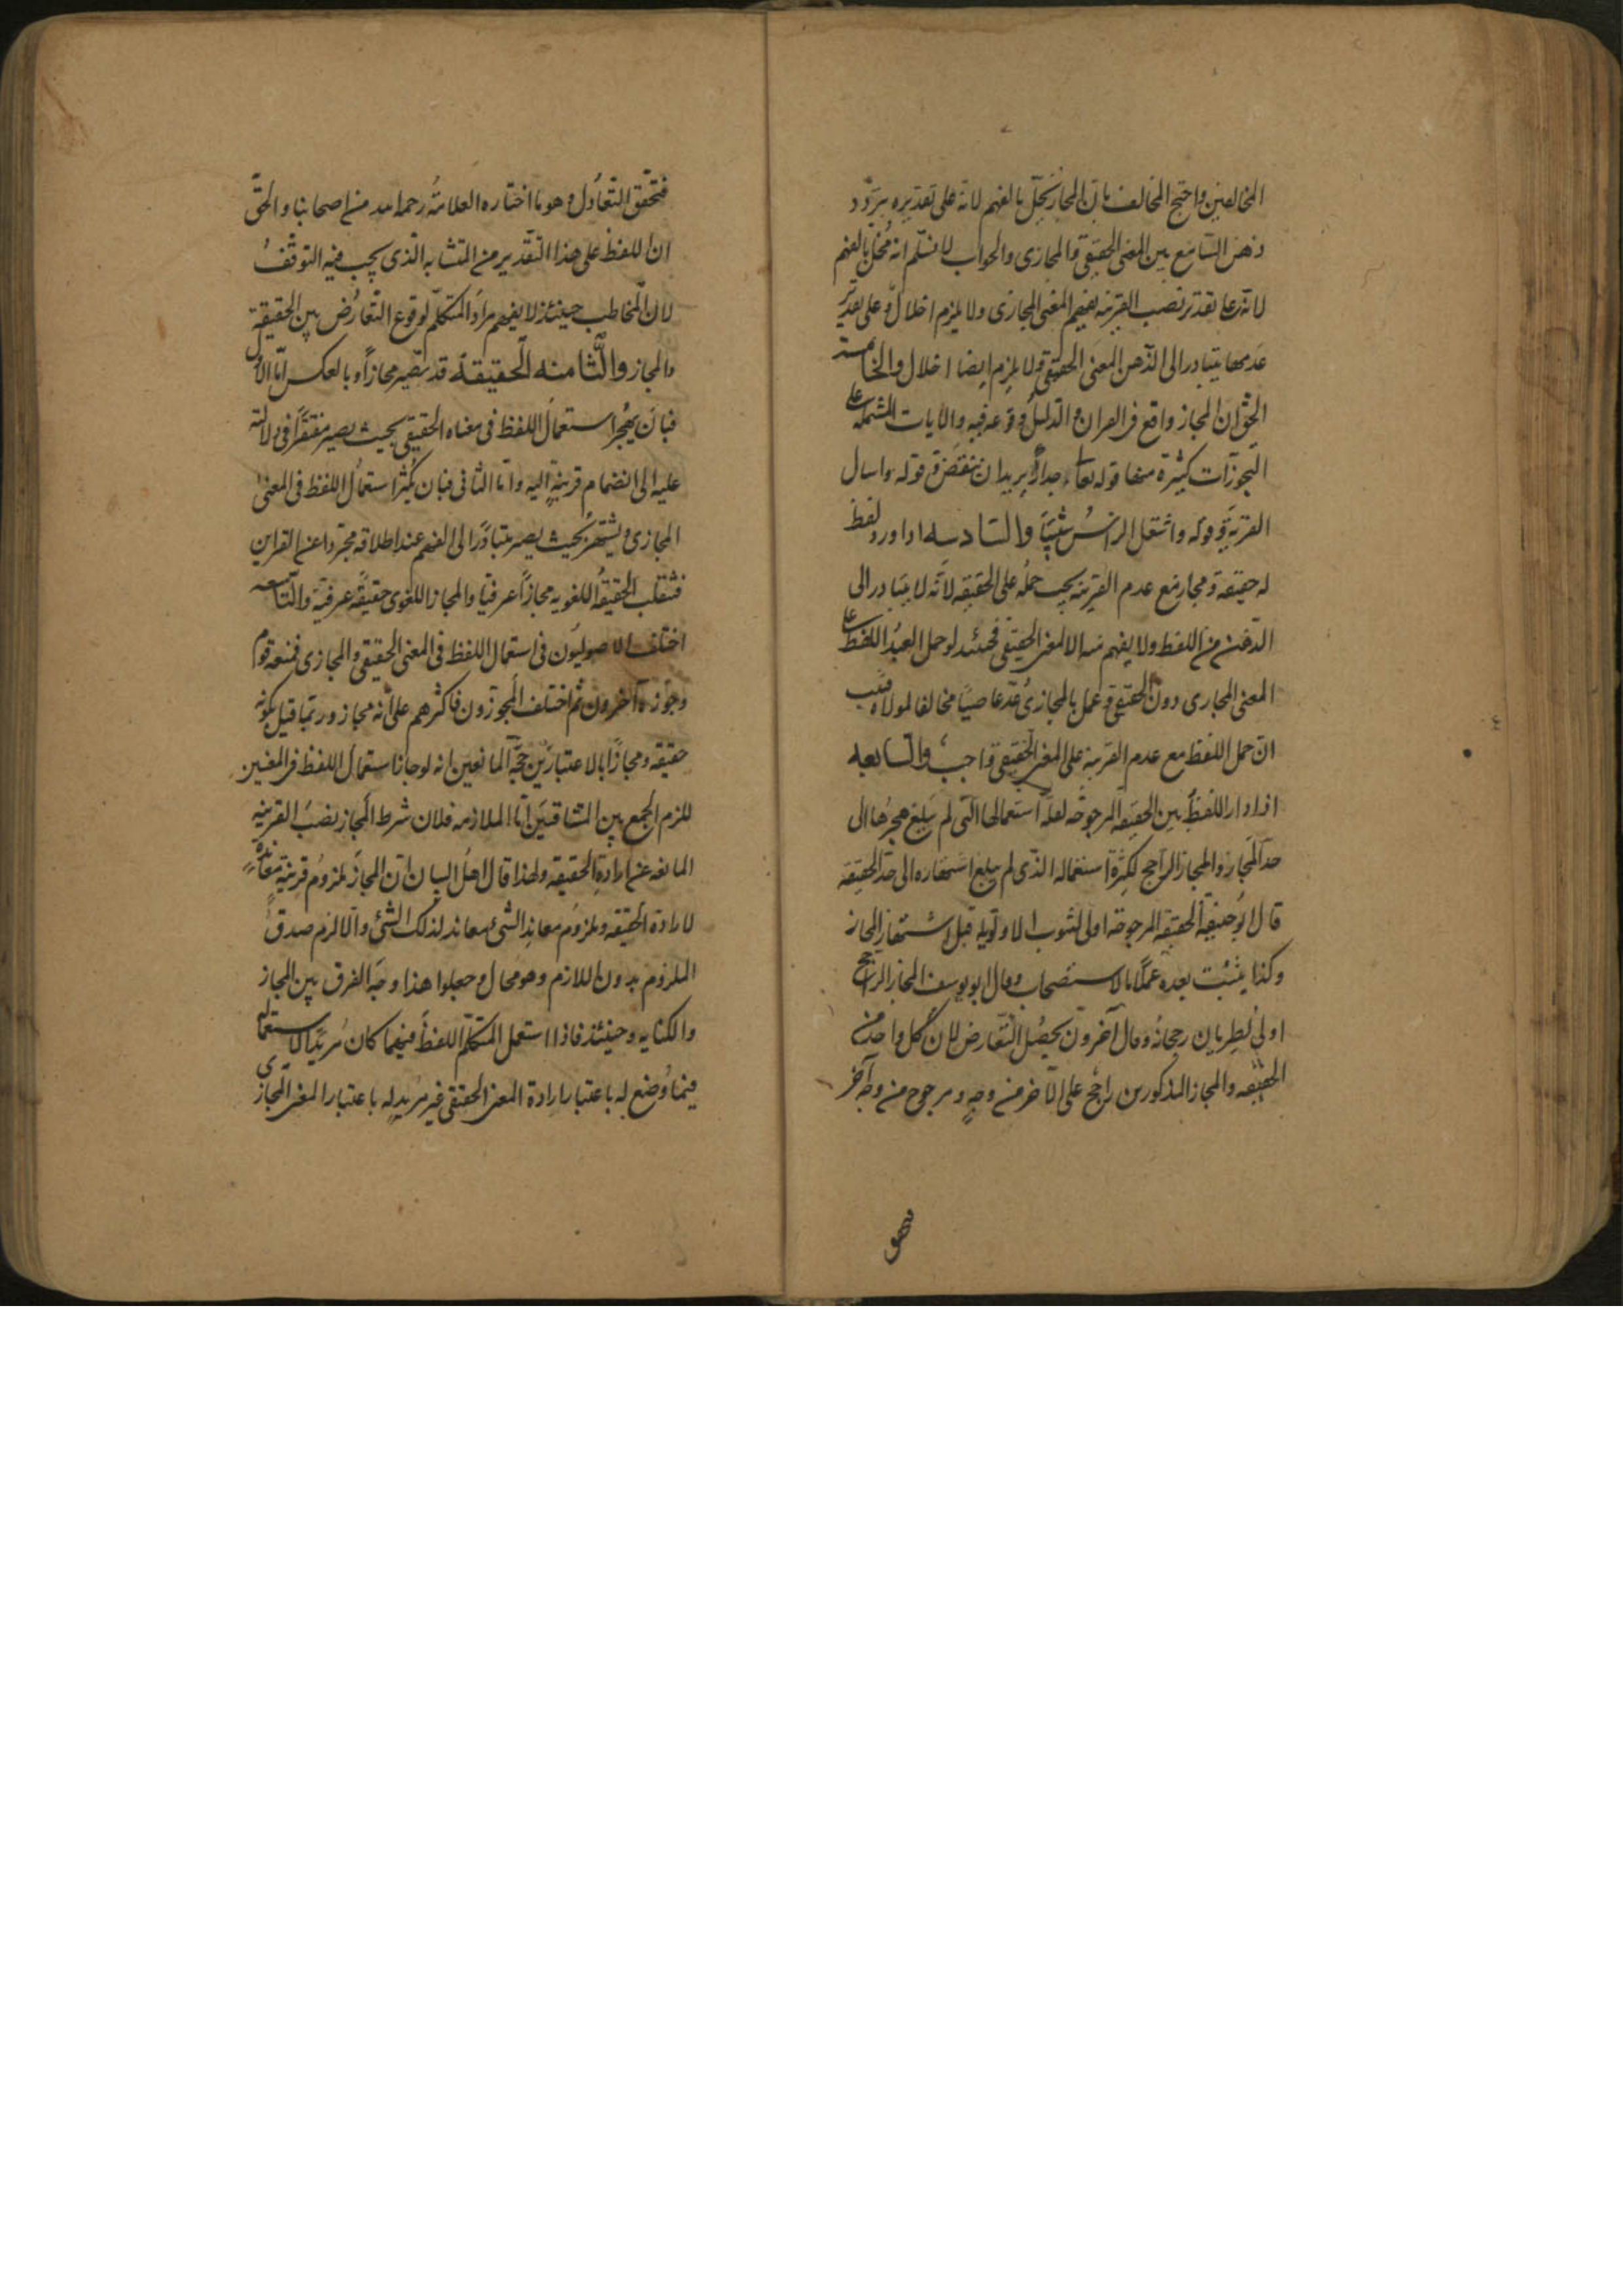 المخالفين واحتج المخالف بان المجاز يخلّ بالفهم لانه على تقديره يتردد
ذهن السامع بين المعنى الحقيقي والمجازي والجواب لا نسلّم انه مُخلّ بالفهم
لانه على تقدير نصب القرينه يفهم المعنى المجازى ولا يلزم اخلال وعلى تقدير
عدمها يتبادر الى الذهن المعنى الحقيقي ولا يلزم ايضا اخلال والخامسة
الحق ان المجاز واقع فى القران والدليل وقوعه فيه والايات المشتملة على
التجوزات كثيرة منها قوله تعالى جداراً يريد ان ينقض وقوله واسال
القرية وقوله واشتعل الراسُ شَيبًا والسادسه اذا ورد لفظ
له حقيقه ومجاز مع عدم القرينه يجب حمله على الحقيقه لانّه لا يتبادر الى
الذهن من اللفظ ولا يفهم منه الا المعنى الحقيقي فحينئذ لو حمل العبدُ اللفظ على
المعنى المجازى دون الحقيقي وعمل بالمجازى عُدّ عاصيًا مخالفا لمولاه فيجب
انّ حمل اللفظ مع عدم القرينة على المعنى الحقيقي واجب والسابعه
اذا دار اللفظُ بين الحقيقه المرجوحه لقلّة استعمالها التى لم يبلغ هجرُها الى
حدّ المجاز والمجاز الراجح لكثرة استعماله الذى لم يبلغ اشتهاره الى حدّ الحقيقه
قال ابو حنيفة الحقيقه المرجوحة اولى لثبوت الاولويه قبل اشتهار المجاز
وكذا يثبُت بعده عملًا بالاستصحاب وقال ابو يوسف المجاز الراجح
اولى لطريان رجحانه وقال آخرون يحصُل التعارض لان كل واحد من
الحقيقه والمجاز المذكورين راجح على الآخر من وجهٍ ومرجوح من وجه آخر
فتحقق التعادُل وهو ما اختاره العلامةُ رحمه الله من اصحابنا والحقّ
انّ اللفظ على هذا التقدير من المتشابه الذى يجب فيه التوقّفُ
لانّ المخاطب حينئذ لا يفهم مراد المتكلم لوقوع التعارُض بين الحقيقة
والمجاز والثامنه الحقيقة قد تصير مجازاً وبالعكس امّا الاول
فبان يُهجر استعمال اللفظ فى معناه الحقيقي بحيث يصير مفتقرًا فى دلالته
عليه الى انضمام قرينةٍ اليه وامّا الثانى فبان يكثر استعمال اللفظ فى المعنى
المجازى ويشتهر بحيث يصير متبادرًا الى الفهم عند اطلاقه مجردا عن القراين
فتنقلب الحقيقةُ اللغويه مجازاً عرفيّا والمجاز اللغوى حقيقة عرفية والتاسعه
اختلف الاصوليون فى استعمال اللفظ فى المعنى الحقيقي والمجازى فمنعه قوم
وجوّزه آخرون ثم اختلف المجوزون فاكثرهم على انّه مجاز وربّما قيل بكونه
حقيقة ومجازًا بالاعتبارين حجّة المانعين انه لو جاز استعمال اللفظ فى المعنيين
للزم الجمع بين المتنافيَين امّا الملازمه فلان شرط المجاز نصبُ القرينة
المانعه عن ارادة الحقيقه ولهذا قال اهلُ البيان انّ المجازَ ملزومُ قرينة معاندةٍ
لارادة الحقيقه وملزومُ معاند الشئ معاند لذلك الشئ والّا لزم صدقُ
الملزوم بدون اللازم وهو محال وجعلوا هذا وجهَ الفرق بين المجاز
والكنايه وحينئذ فاذا استعمل المتكلّم اللفظَ فيهما كان مُريدًا لاستعماله
فيما وُضع له باعتبار ارادة المعنى الحقيقي غير مُريدٍ له باعتبار المعنى المجازى